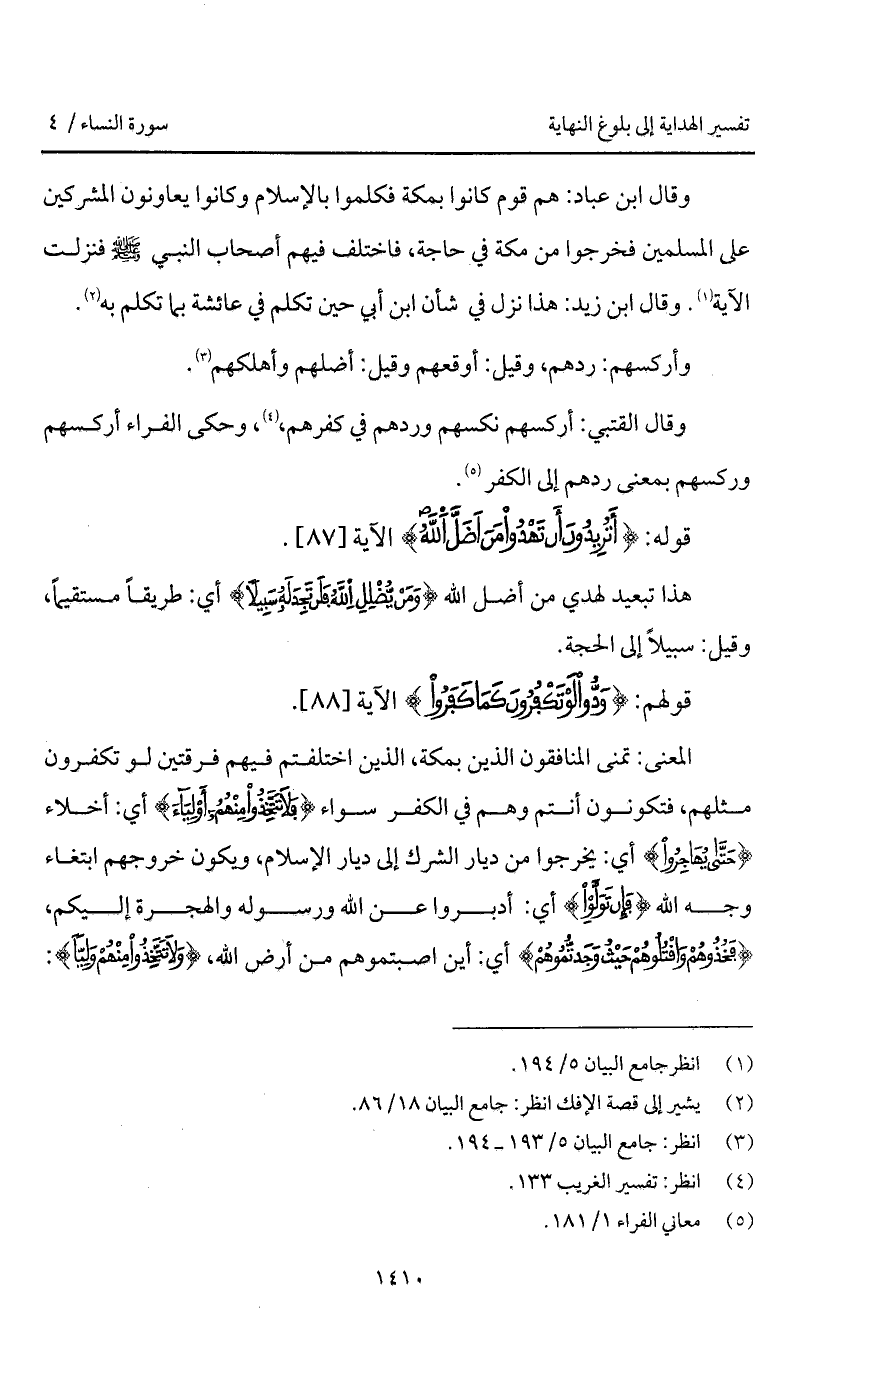 تفسير الهداية إلى بلوغ النهاية سورة النساء / ٤
وقال ابن عباد: هم قوم كانوا بمكة فكلموا بالإسلام وكانوا يعاونون المشركين
على المسلمين فخرجوا من مكة في حاجة، فاختلف فيهم أصحاب النبي ﷺ فنزلت
الآية(١). وقال ابن زيد: هذا نزل في شأن ابن أبي حين تكلم في عائشة بما تكلم به(٢).
وأركسهم: ردهم، وقيل: أوقعهم وقيل: أضلهم وأهلكهم(٣).
وقال القتبي: أركسهم نكسهم وردهم في كفرهم،(٤)، وحكى الفراء أركسهم
وركسهم بمعنى ردهم إلى الكفر(٥).
قوله: ﴿أَتُرِيدُونَ أَن تَهْدُوا۟ مَنَ اَضَلَّ اَللَّهُ﴾ الآية [٨٧].
هذا تبعيد لهدي من أضل الله ﴿وَمَنْ يُّضْلِلِ اِللَّهُ فَلَن تَجِدَ لَهُۥ سَبِيلًا﴾ أي: طريقاً مستقيماً،
وقيل: سبيلاً إلى الحجة.
قولهم: ﴿وَدُّوا۟ لَوْ تَكْفُرُونَ كَمَا كَفَرُوا۟﴾ الآية [٨٨].
المعنى: تمنى المنافقون الذين بمكة، الذين اختلفتم فيهم فرقتين لو تكفرون
مثلهم، فتكونون أنتم وهم في الكفر سواء ﴿فَلَا تَتَّخِذُوا۟ مِنْهُمُۥٓ أَوْلِيَآءَ﴾ أي: أخلاء
﴿حَتَّىٰ يُهَاجِرُوا۟﴾ أي: يخرجوا من ديار الشرك إلى ديار الإسلام، ويكون خروجهم ابتغاء
وجه الله ﴿فَإِن تَوَلَّوْا۟﴾ أي: أدبروا عن الله ورسوله والهجرة إليكم،
﴿فَخُذُوهُمْ وَاقْتُلُوهُمْ حَيْثُ وَجَدتُّمُوهُمْ﴾ أي: أين اصبتموهم من أرض الله، ﴿وَلَا تَتَّخِذُوا۟ مِنْهُمْ وَلِيّاً﴾:
(١) انظر جامع البيان ٥/ ١٩٤.
(٢) يشير إلى قصة الإفك انظر: جامع البيان ١٨/ ٨٦.
(٣) انظر: جامع البيان ٥/ ١٩٣ ـ ١٩٤.
(٤) انظر: تفسير الغريب ١٣٣.
(٥) معاني الفراء ١/ ١٨١.
١٤١٠